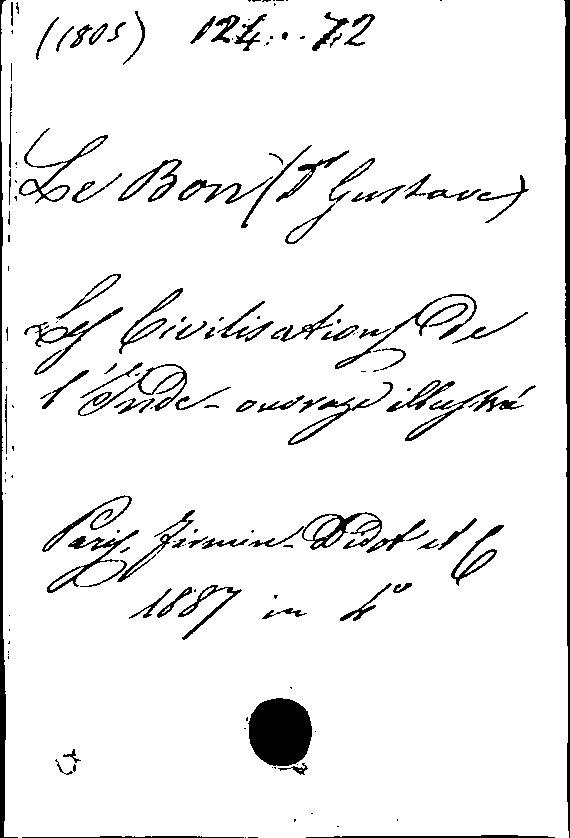 (1805) 124..72
Le Bon (Dr Gustave)
Les Civilisations de
l'Inde - ouvrage illustré
Paris, Firmin-Didot et C
1887 in 4°